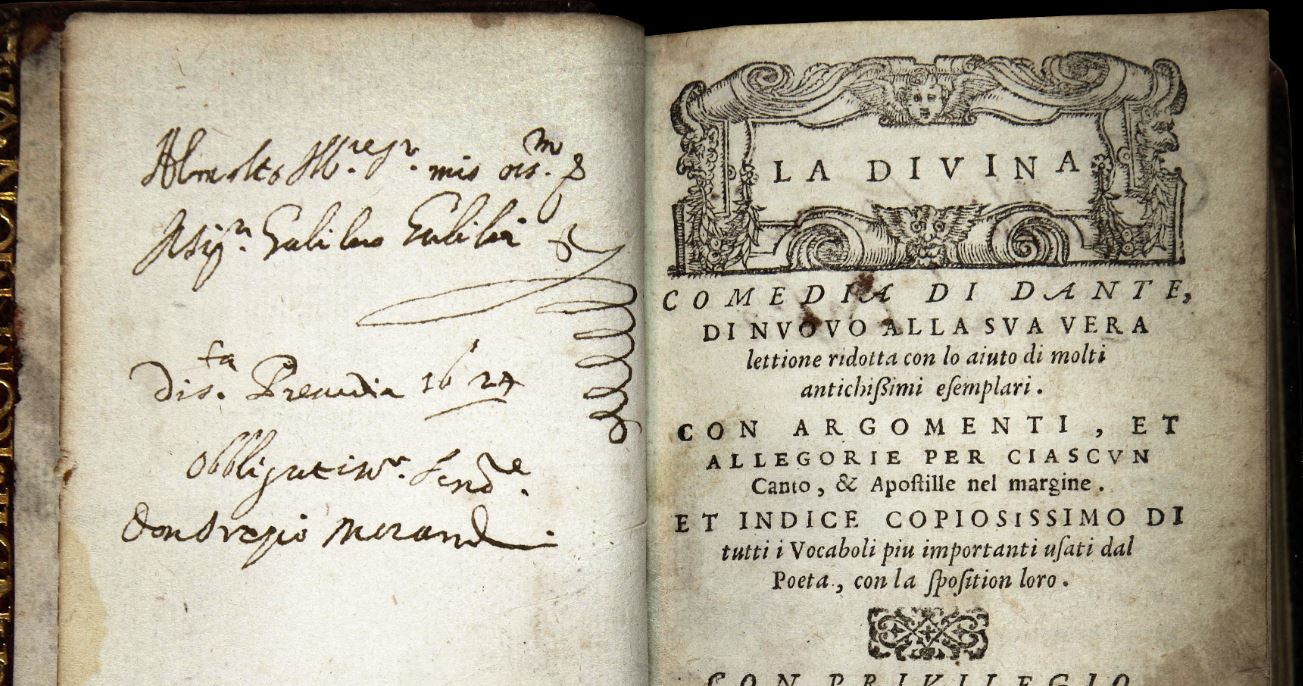 Al molto Ill.re Sr. mio oss.mo
Il sig.r Galileo Galilei
Di s.ta Prasedia 1624
Obbligatiss.r Serv.re
Don Oratio Morandi.
LA DIVINA
COMEDIA DI DANTE,
DI NVOVO ALLA SVA VERA
lettione ridotta con lo aiuto di molti
antichißimi eſemplari.
CON ARGOMENTI, ET
ALLEGORIE PER CIASCVN
Canto, & Apoſtille nel margine.
ET INDICE COPIOSISSIMO DI
tutti i Vocaboli piu importanti uſati dal
Poeta, con la ſpoſition loro.
CON PRIVILEGIO